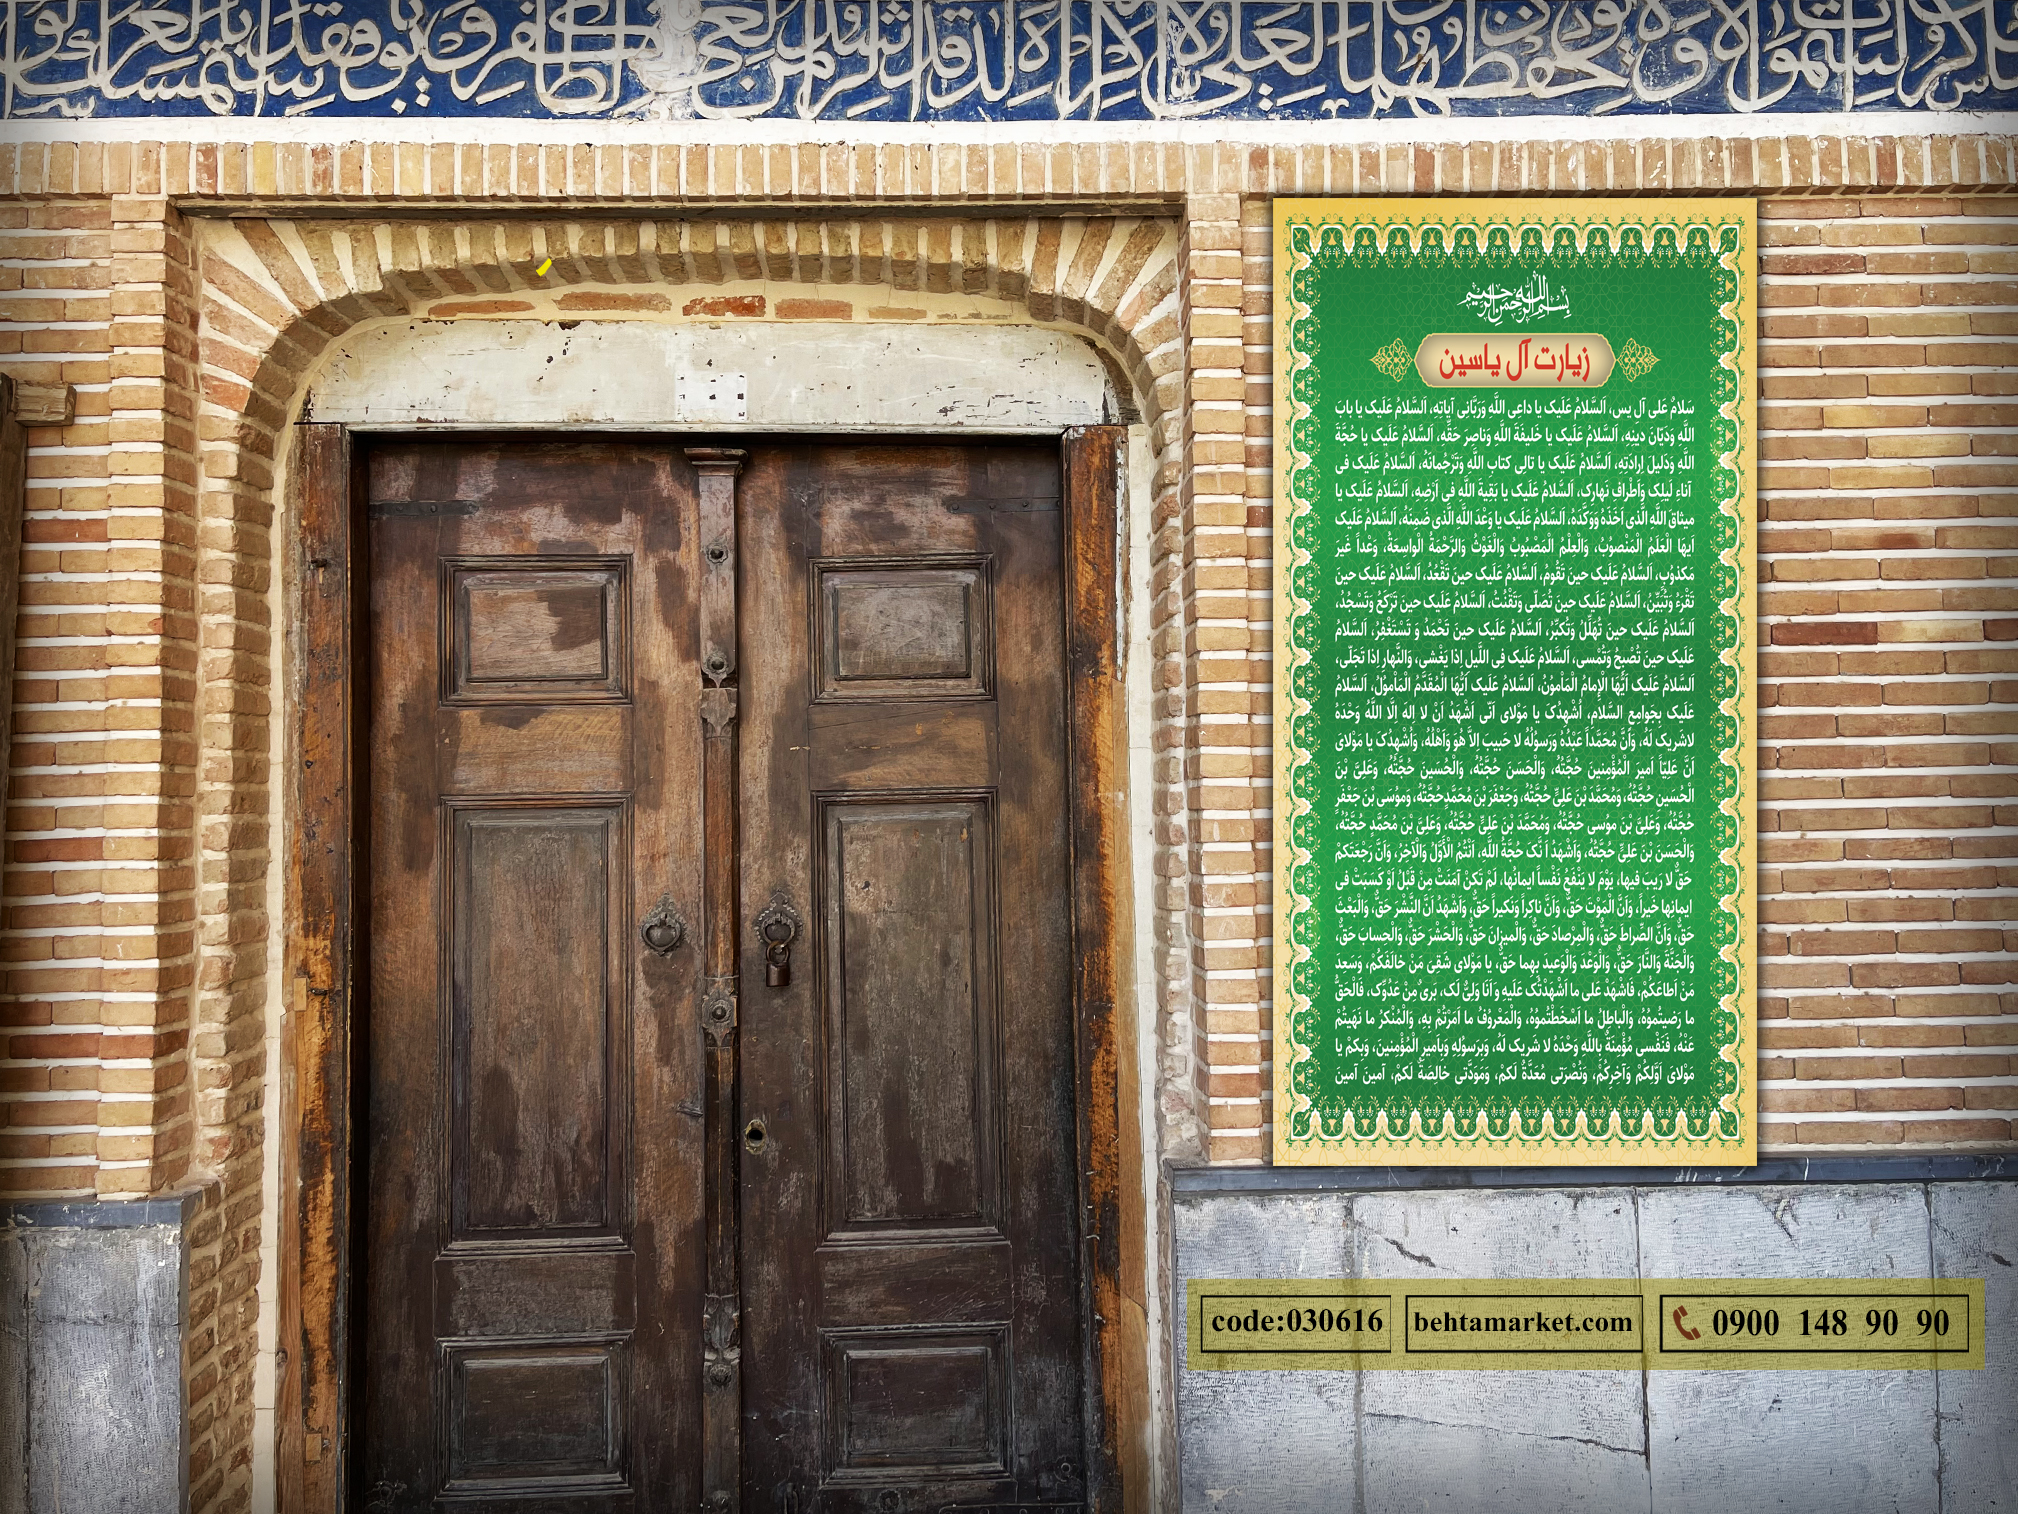 بسم الله الرحمن الرحیم
زیارت آل یاسین
سَلامٌ عَلی آلِ یس، اَلسَّلامُ عَلَیک یا داعِی اللَّهِ وَرَبَّانِی آیاتِهِ، اَلسَّلامُ عَلَیک یا بابَ
اللَّهِ وَدَیّانَ دینِهِ، اَلسَّلامُ عَلَیک یا خَلیفَةَ اللَّهِ وَناصِرَ حَقِّهِ، اَلسَّلامُ عَلَیک یا حُجَّةَ
اللَّهِ وَدَلیلَ اِرادَتِهِ، اَلسَّلامُ عَلَیک یا تالِی کتابِ اللَّهِ وَتَرْجُمانَهُ، اَلسَّلامُ عَلَیک فی
آناءِ لَیلِک وَاَطْرافِ نَهارِک، اَلسَّلامُ عَلَیک یا بَقِیةَ اللَّهِ فی اَرْضِهِ، اَلسَّلامُ عَلَیک یا
میثاقَ اللَّهِ الَّذی اَخَذَهُ وَوَکَّدَهُ، اَلسَّلامُ عَلَیک یا وَعْدَ اللَّهِ الَّذی ضَمِنَهُ، اَلسَّلامُ عَلَیک
اَیهَا الْعَلَمُ الْمَنْصُوبُ، وَالْعِلْمُ الْمَصْبُوبُ وَالْغَوْثُ وَالرَّحْمَةُ الْواسِعَةُ، وَعْداً غَیرَ
مَکذوُبٍ، اَلسَّلامُ عَلَیک حینَ تَقُومُ، اَلسَّلامُ عَلَیک حینَ تَقْعُدُ، اَلسَّلامُ عَلَیک حینَ
تَقْرَءُ وَتُبَیِّنُ، اَلسَّلامُ عَلَیک حینَ تُصَلّی وَتَقْنُتُ، اَلسَّلامُ عَلَیک حینَ تَرْکَعُ وَتَسْجُدُ،
اَلسَّلامُ عَلَیک حینَ تُهَلِّلُ وَتُکَبِّرُ، اَلسَّلامُ عَلَیک حینَ تَحْمَدُ وَ تَسْتَغْفِرُ، اَلسَّلامُ
عَلَیک حینَ تُصْبِحُ وَتُمْسی، اَلسَّلامُ عَلَیک فِی اللَّیلِ اِذا یَغْشی، وَالنَّهارِ اِذا تَجَلّی،
اَلسَّلامُ عَلَیک اَیُّهَا الْاِمامُ الْمَاْمُونُ، اَلسَّلامُ عَلَیک اَیُّهَا الْمُقَدَّمُ الْمَاْموُلُ، اَلسَّلامُ
عَلَیک بِجَوامِعِ السَّلامِ، اُشْهِدُک یا مَوْلای اَنّی اَشْهَدُ اَنْ لا اِلهَ اِلَّا اللَّهُ وَحْدَهُ
لاشَریک لَهُ، وَاَنَّ مُحَمَّداً عَبْدُهُ وَرَسوُلُهُ لا حَبیبَ اِلاَّ هُوَ وَاَهْلُهُ، وَاُشْهِدُک یا مَوْلای
اَنَّ عَلِیّاً اَمیرَ الْمُؤْمِنینَ حُجَّتُهُ، وَالْحَسَنَ حُجَّتُهُ، وَالْحُسَینَ حُجَّتُهُ، وَعَلِیَّ بْنَ
الْحُسَینِ حُجَّتُهُ، وَمُحَمَّدَ بْنَ عَلِیٍّ حُجَّتُهُ، وَجَعْفَرَ بْنَ مُحَمَّدٍ حُجَّتُهُ، وَموُسَی بْنَ جَعْفَرٍ
حُجَّتُهُ، وَعَلِیَّ بْنَ موُسی حُجَّتُهُ، وَمُحَمَّدَ بْنَ عَلِیٍّ حُجَّتُهُ، وَعَلِیَّ بْنَ مُحَمَّدٍ حُجَّتُهُ،
وَالْحَسَنَ بْنَ عَلِیٍّ حُجَّتُهُ، وَاَشْهَدُ اَ نَّک حُجَّةُ اللَّهِ، اَنْتُمُ الْاَوَّلُ وَالْآخِرُ، وَاَنَّ رَجْعَتَکمْ
حَقٌّ لا رَیبَ فیها، یَوْمَ لا یَنْفَعُ نَفْساً ایمانُها، لَمْ تَکنْ آمَنَتْ مِنْ قَبْلُ اَوْ کَسَبَتْ فی
ایمانِها خَیراً، وَاَنَّ الْمَوْتَ حَقٌّ، وَاَنَّ ناکِراً وَنَکیراً حَقٌّ، وَاَشْهَدُ اَنَّ النَّشْرَ حَقٌّ، وَالْبَعْثَ
حَقٌّ، وَاَنَّ الصِّراطَ حَقٌّ، وَالْمِرْصادَ حَقٌّ، وَالْمیزانَ حَقٌّ، وَالْحَشْرَ حَقٌّ، وَالْحِسابَ حَقٌّ،
وَالْجَنَّةَ وَالنَّارَ حَقٌّ، وَالْوَعْدَ وَالْوَعیدَ بِهِما حَقٌّ، یا مَوْلای شَقِیَ مَنْ خالَفَکُمْ، وَسَعِدَ
مَنْ اَطاعَکُمْ، فَاشْهَدْ عَلی ما اَشْهَدْتُک عَلَیهِ وَ اَنَا وَلِیٌّ لَک، بَریٌ مِنْ عَدُوِّک، فَالْحَقُّ
ما رَضیتُموُهُ، وَالْباطِلُ ما اَسْخَطْتُموُهُ، وَالْمَعْروُفُ ما اَمَرْتُمْ بِهِ، وَالْمُنْکرُ ما نَهَیتُمْ
عَنْهُ، فَنَفْسی مُؤْمِنَةٌ بِاللَّهِ وَحْدَهُ لا شَریک لَهُ، وَبِرَسوُلِهِ وَبِاَمیرِ الْمُؤْمِنینَ، وَبِکمْ یا
مَوْلای اَوَّلِکُمْ وَآخِرِکُمْ، وَنُصْرَتی مُعَدَّةٌ لَکمْ، وَمَوَدَّتی خالِصَةٌ لَکمْ، آمینَ آمینَ
code:030616
behtamarket.com
0900 148 90 90